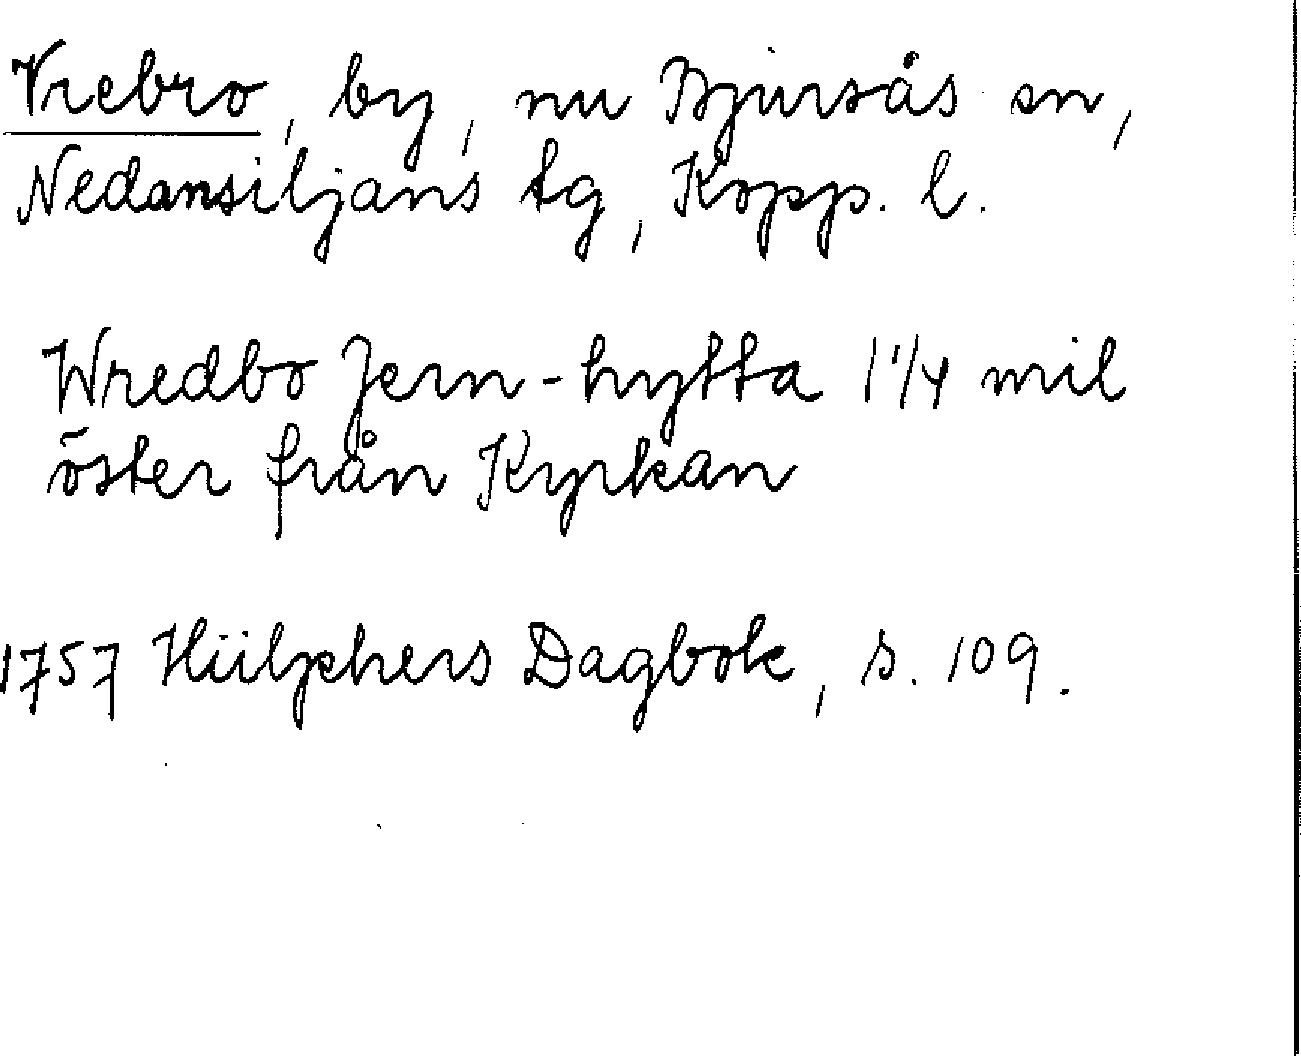 Vrebro, by, nu Bjursås sn,
Nedansiljans tg, Kopp. l.
Wredbo Jern-hytta 1 1/4 mil
öster från Kyrkan
1757 Hülphers Dagbok, s. 109.